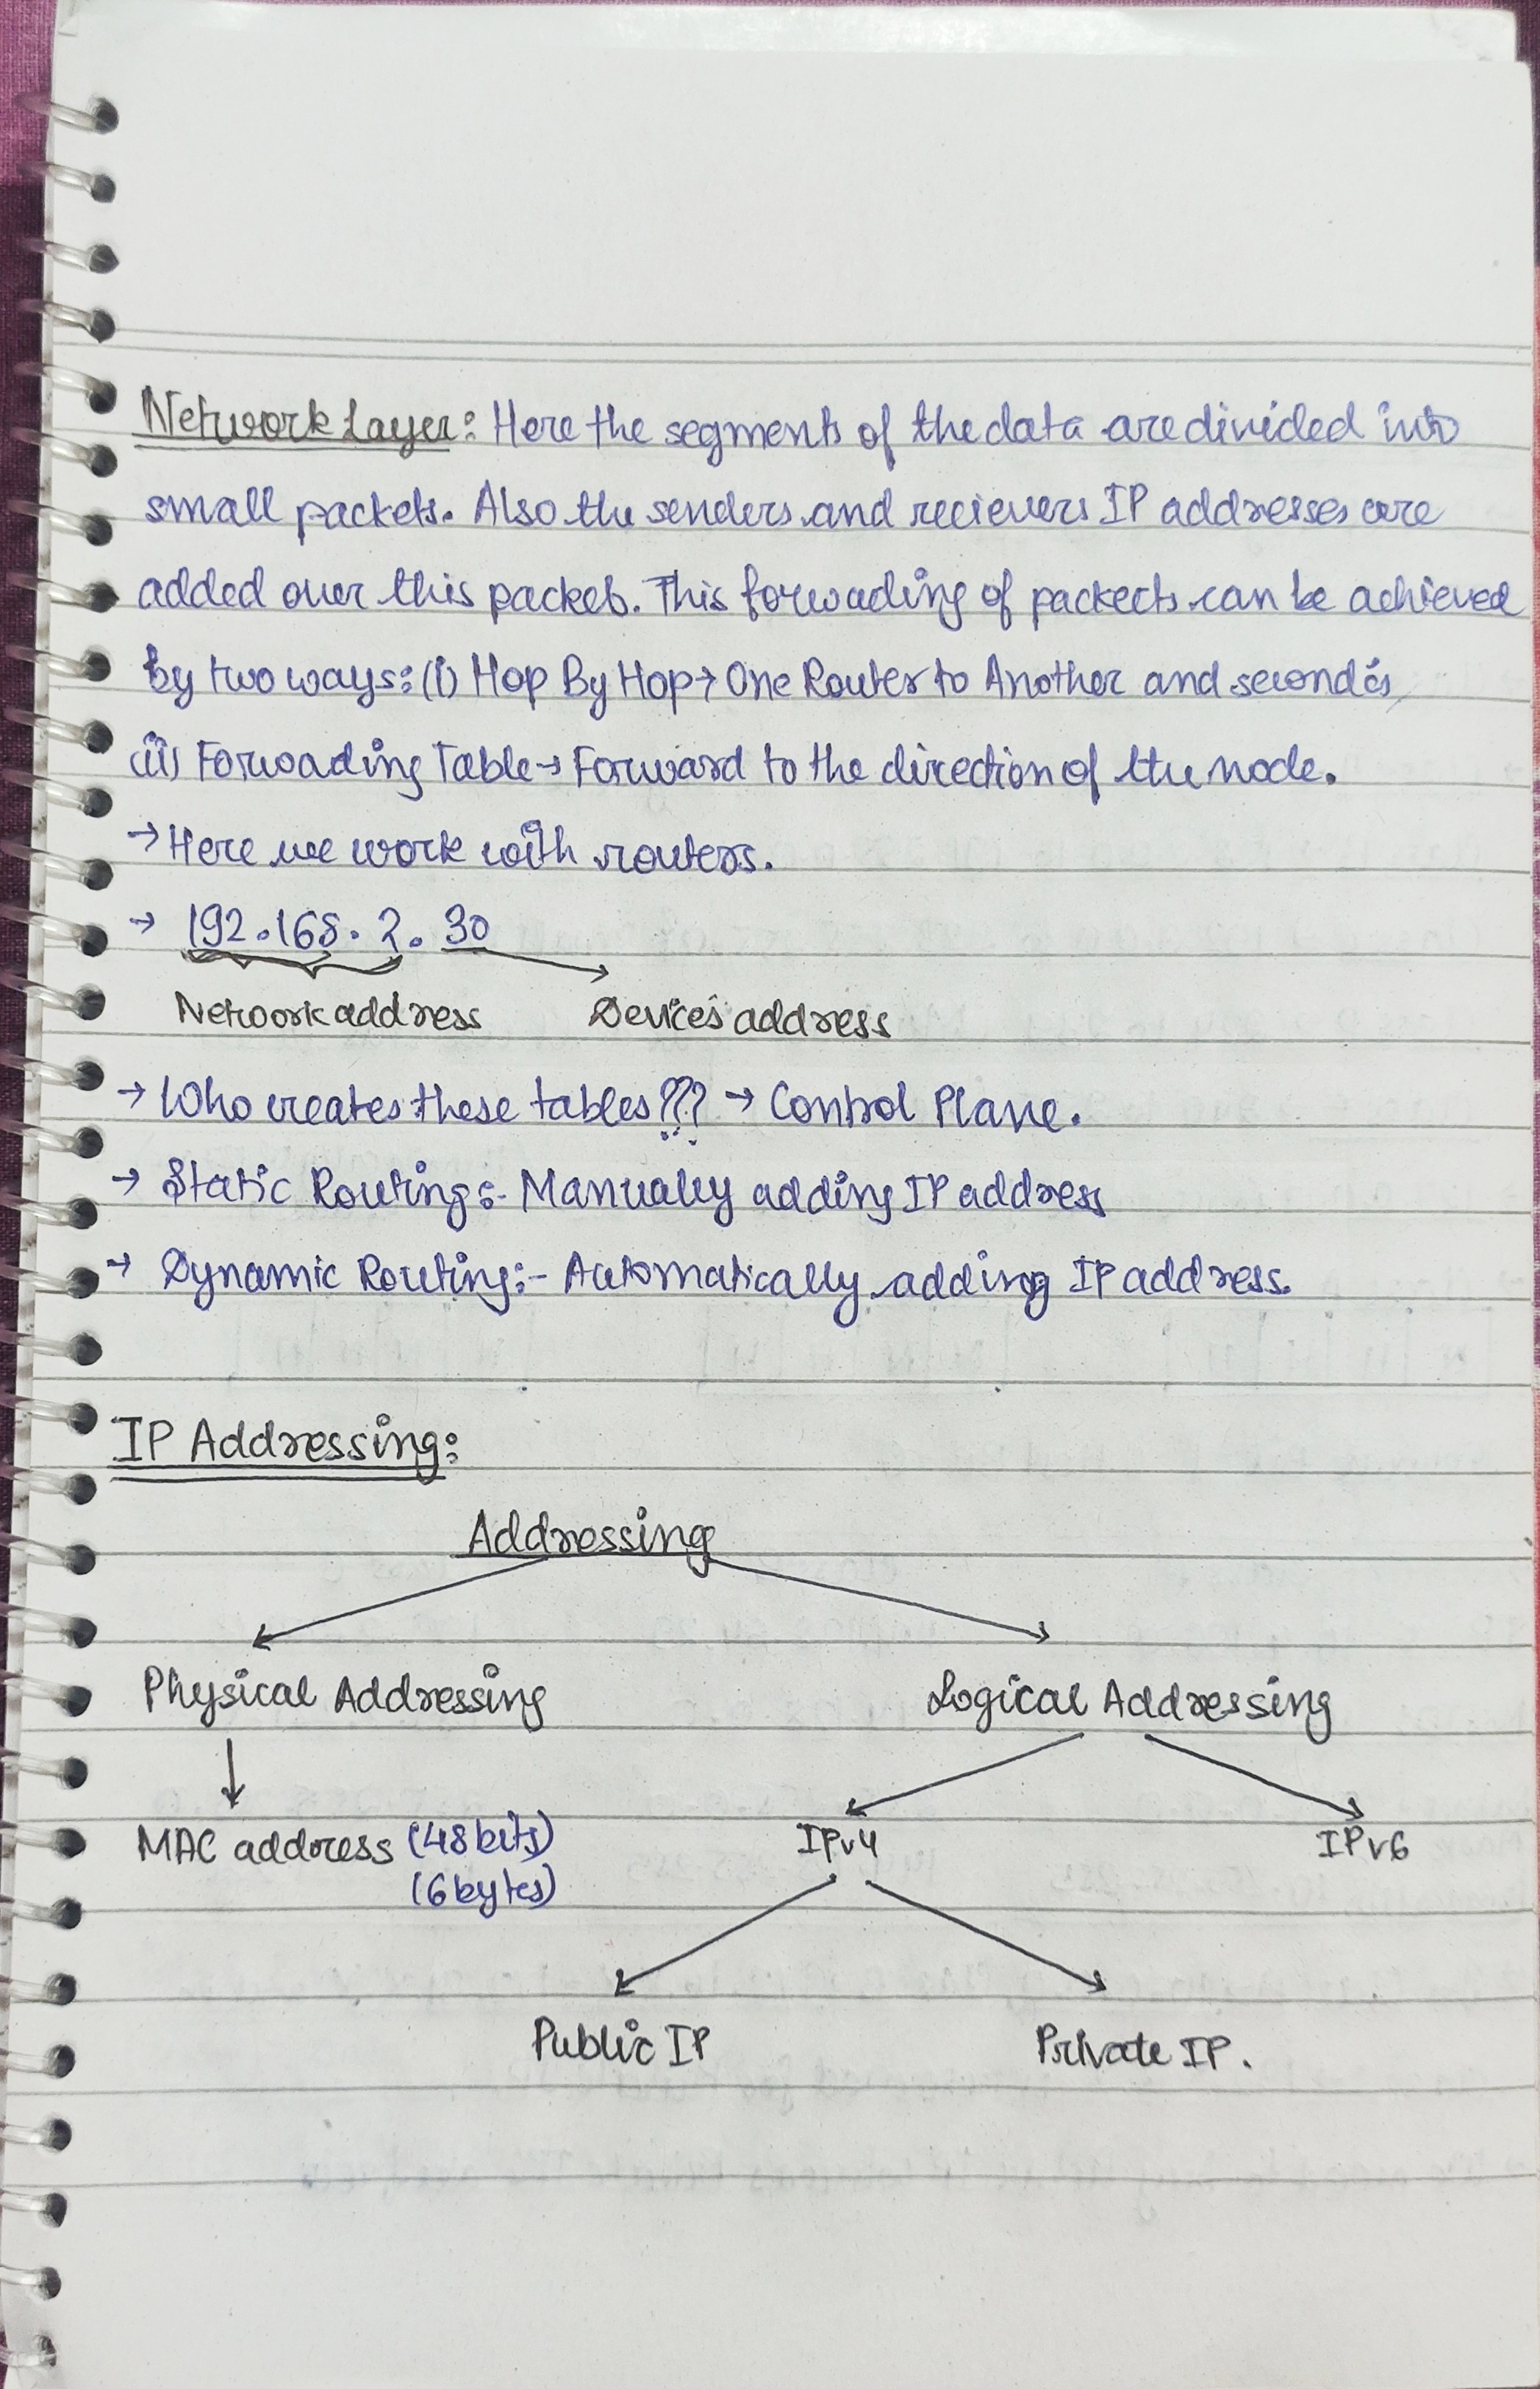 Network Layer: Here the segments of the data are divided into
small packets. Also the senders and recievers IP addresses are
added over this packets. This forwading of packects can be achieved
by two ways: (i) Hop By Hop → One Router to Another and second is
(ii) Forwoading Table → Forward to the direction of the node.
→ Here we work with routers.
→ 192.168.2.30
Network address Devices address
→ Who creates these tables??? → Control Plane.
→ Static Routing:- Manually adding IP address
→ Dynamic Routing:- Automatically adding IP address.
IP Addressing:
Addressing
Physical Addressing Logical Addressing
MAC address (48 bits) IPv4 IPv6
(6 bytes)
Public IP Private IP.